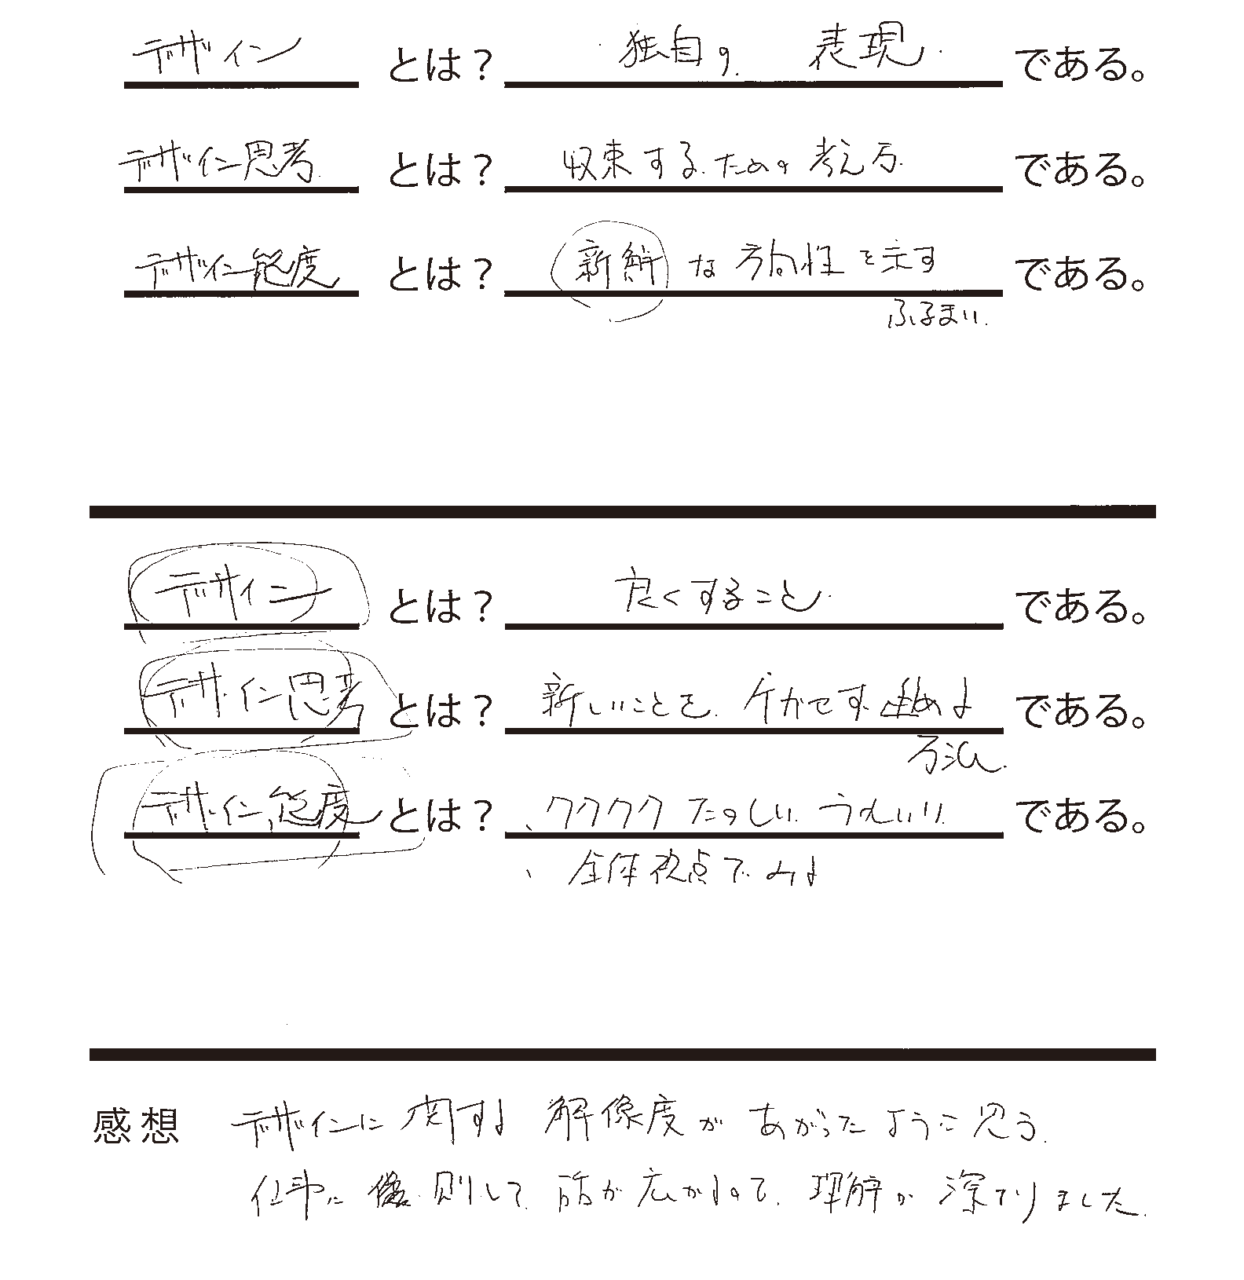 デザイン とは? 独自の 表現 である。
デザイン思考 とは? 収束するための考え方 である。
デザイン態度 とは? 新鮮な方向性を示す である。
ふるまい
デザイン とは? 良くすること である。
デザイン思考 とは? 新しいことを である。
方法
デザイン態度 とは? ククククたのしい うれしい である。
全体視点でみる
感想 デザインに関する解像度があがったように思う
仕事に 則して 話が広がるので 理解が深まりました